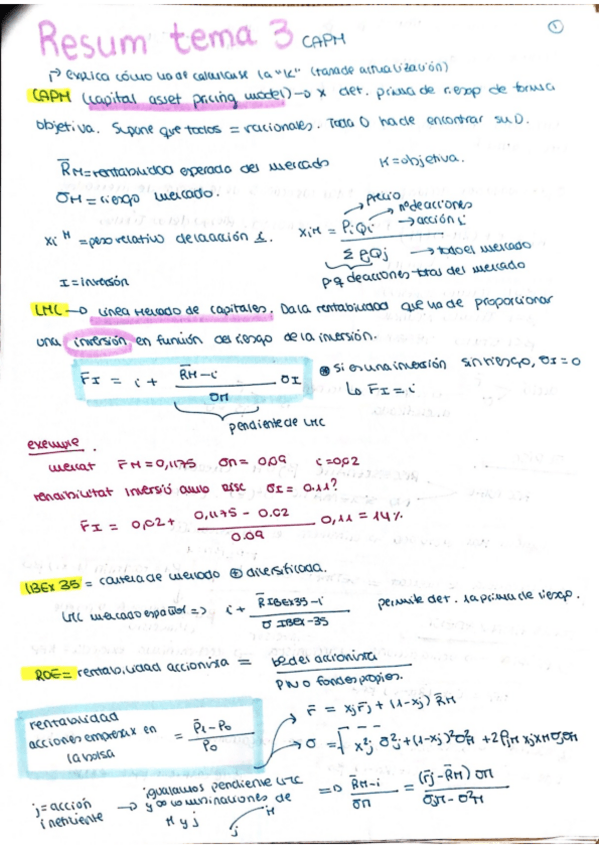 Resum tema 3 CAPM
①
↱ explica cómo ha de calcularse la "K" (tasa de actualización)
CAPM (capital asset pricing model) → x det. prima de riesgo de forma
objetiva. Supone que todos = racionales. Toda O ha de encontrar su D.
R̄M = rentabilidad esperada del mercado K = objetiva.
σM = riesgo mercado.
precio
nº de acciones
xi^M = peso relativo de la acción i. xiM = PiQi → acción i
Σ PjQj → todo el mercado
I = inversión
p × q de acciones total del mercado
LMC → Línea Mercado de capitales. Da la rentabilidad que ha de proporcionar
una inversión en función del riesgo de la inversión.
r̄I = i + (R̄M - i / σM) σI
⊛ si es una inversión sin riesgo, σI = 0
↳ r̄I = i
pendiente de LMC
exemple.
mercat r̄M = 0,1175 σM = 0,09 i = 0,02
rendibilitat inversió amb risc σI = 0.11?
r̄I = 0,02 + (0,1175 - 0.02 / 0.09) 0,11 = 14%
IBEX 35 = cartera de mercado ⊕ diversificada.
LMC mercado español => i + R̄IBEX35 - i / σ IBEX-35 permite det. la prima de riesgo.
ROE = rentabilidad accionista = bº del accionista / PN o fondos propios.
rentabilidad acciones empresa x en la bolsa = P̄1 - P0 / P0
r̄ = xj r̄j + (1-xj) R̄M
σ = √ x²j σ²j + (1-xj)² σ²M + 2ρjM xj xM σj σM
j = acción ineficiente → igualamos pendiente LMC y de combinaciones de M y j
j M
=> R̄M - i / σM = (r̄j - R̄M) σM / σjM - σ²M